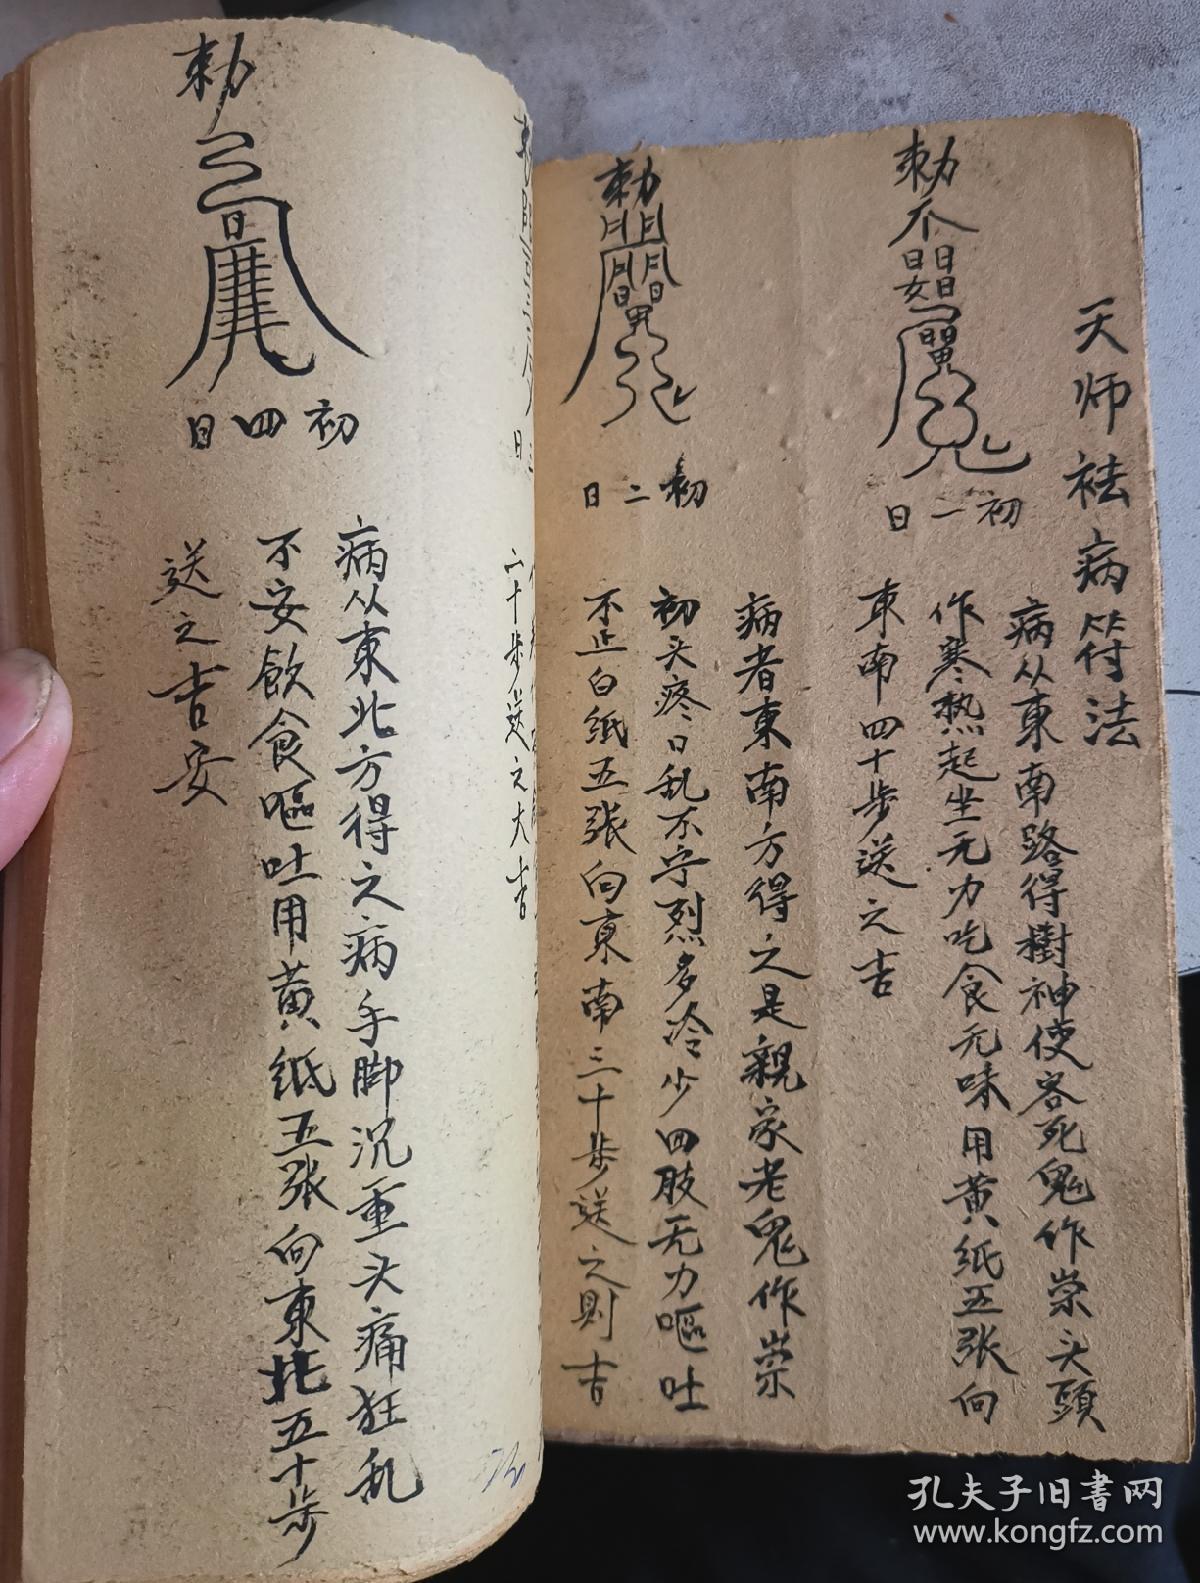 天师祛病符法
勅
初一日
病从東南路得樹神使客死鬼作祟头頭
作寒热起坐无力吃食无味用黄纸五张向
東南四十步送之吉
勅
初二日
病者東南方得之是親家老鬼作祟
初头疼日乱不宁烈多冷少四肢无力嘔吐
不止白纸五張向東南三十步送之則吉
二十步送之大吉
勅
初四日
病从東北方得之病手脚沉重头痛狂乱
不安飲食嘔吐用黄纸五张向東北五十步
送之吉安
孔夫子旧書网
www.kongfz.com